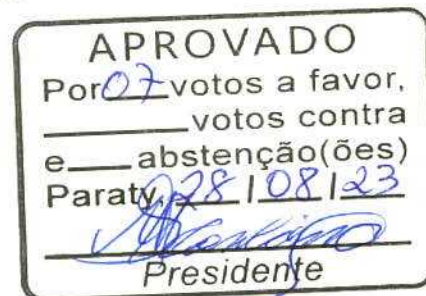 APROVADO
Por 07 votos a favor,
votos contra
e abstenção(ões)
Paraty, 28 / 08 / 23
Presidente